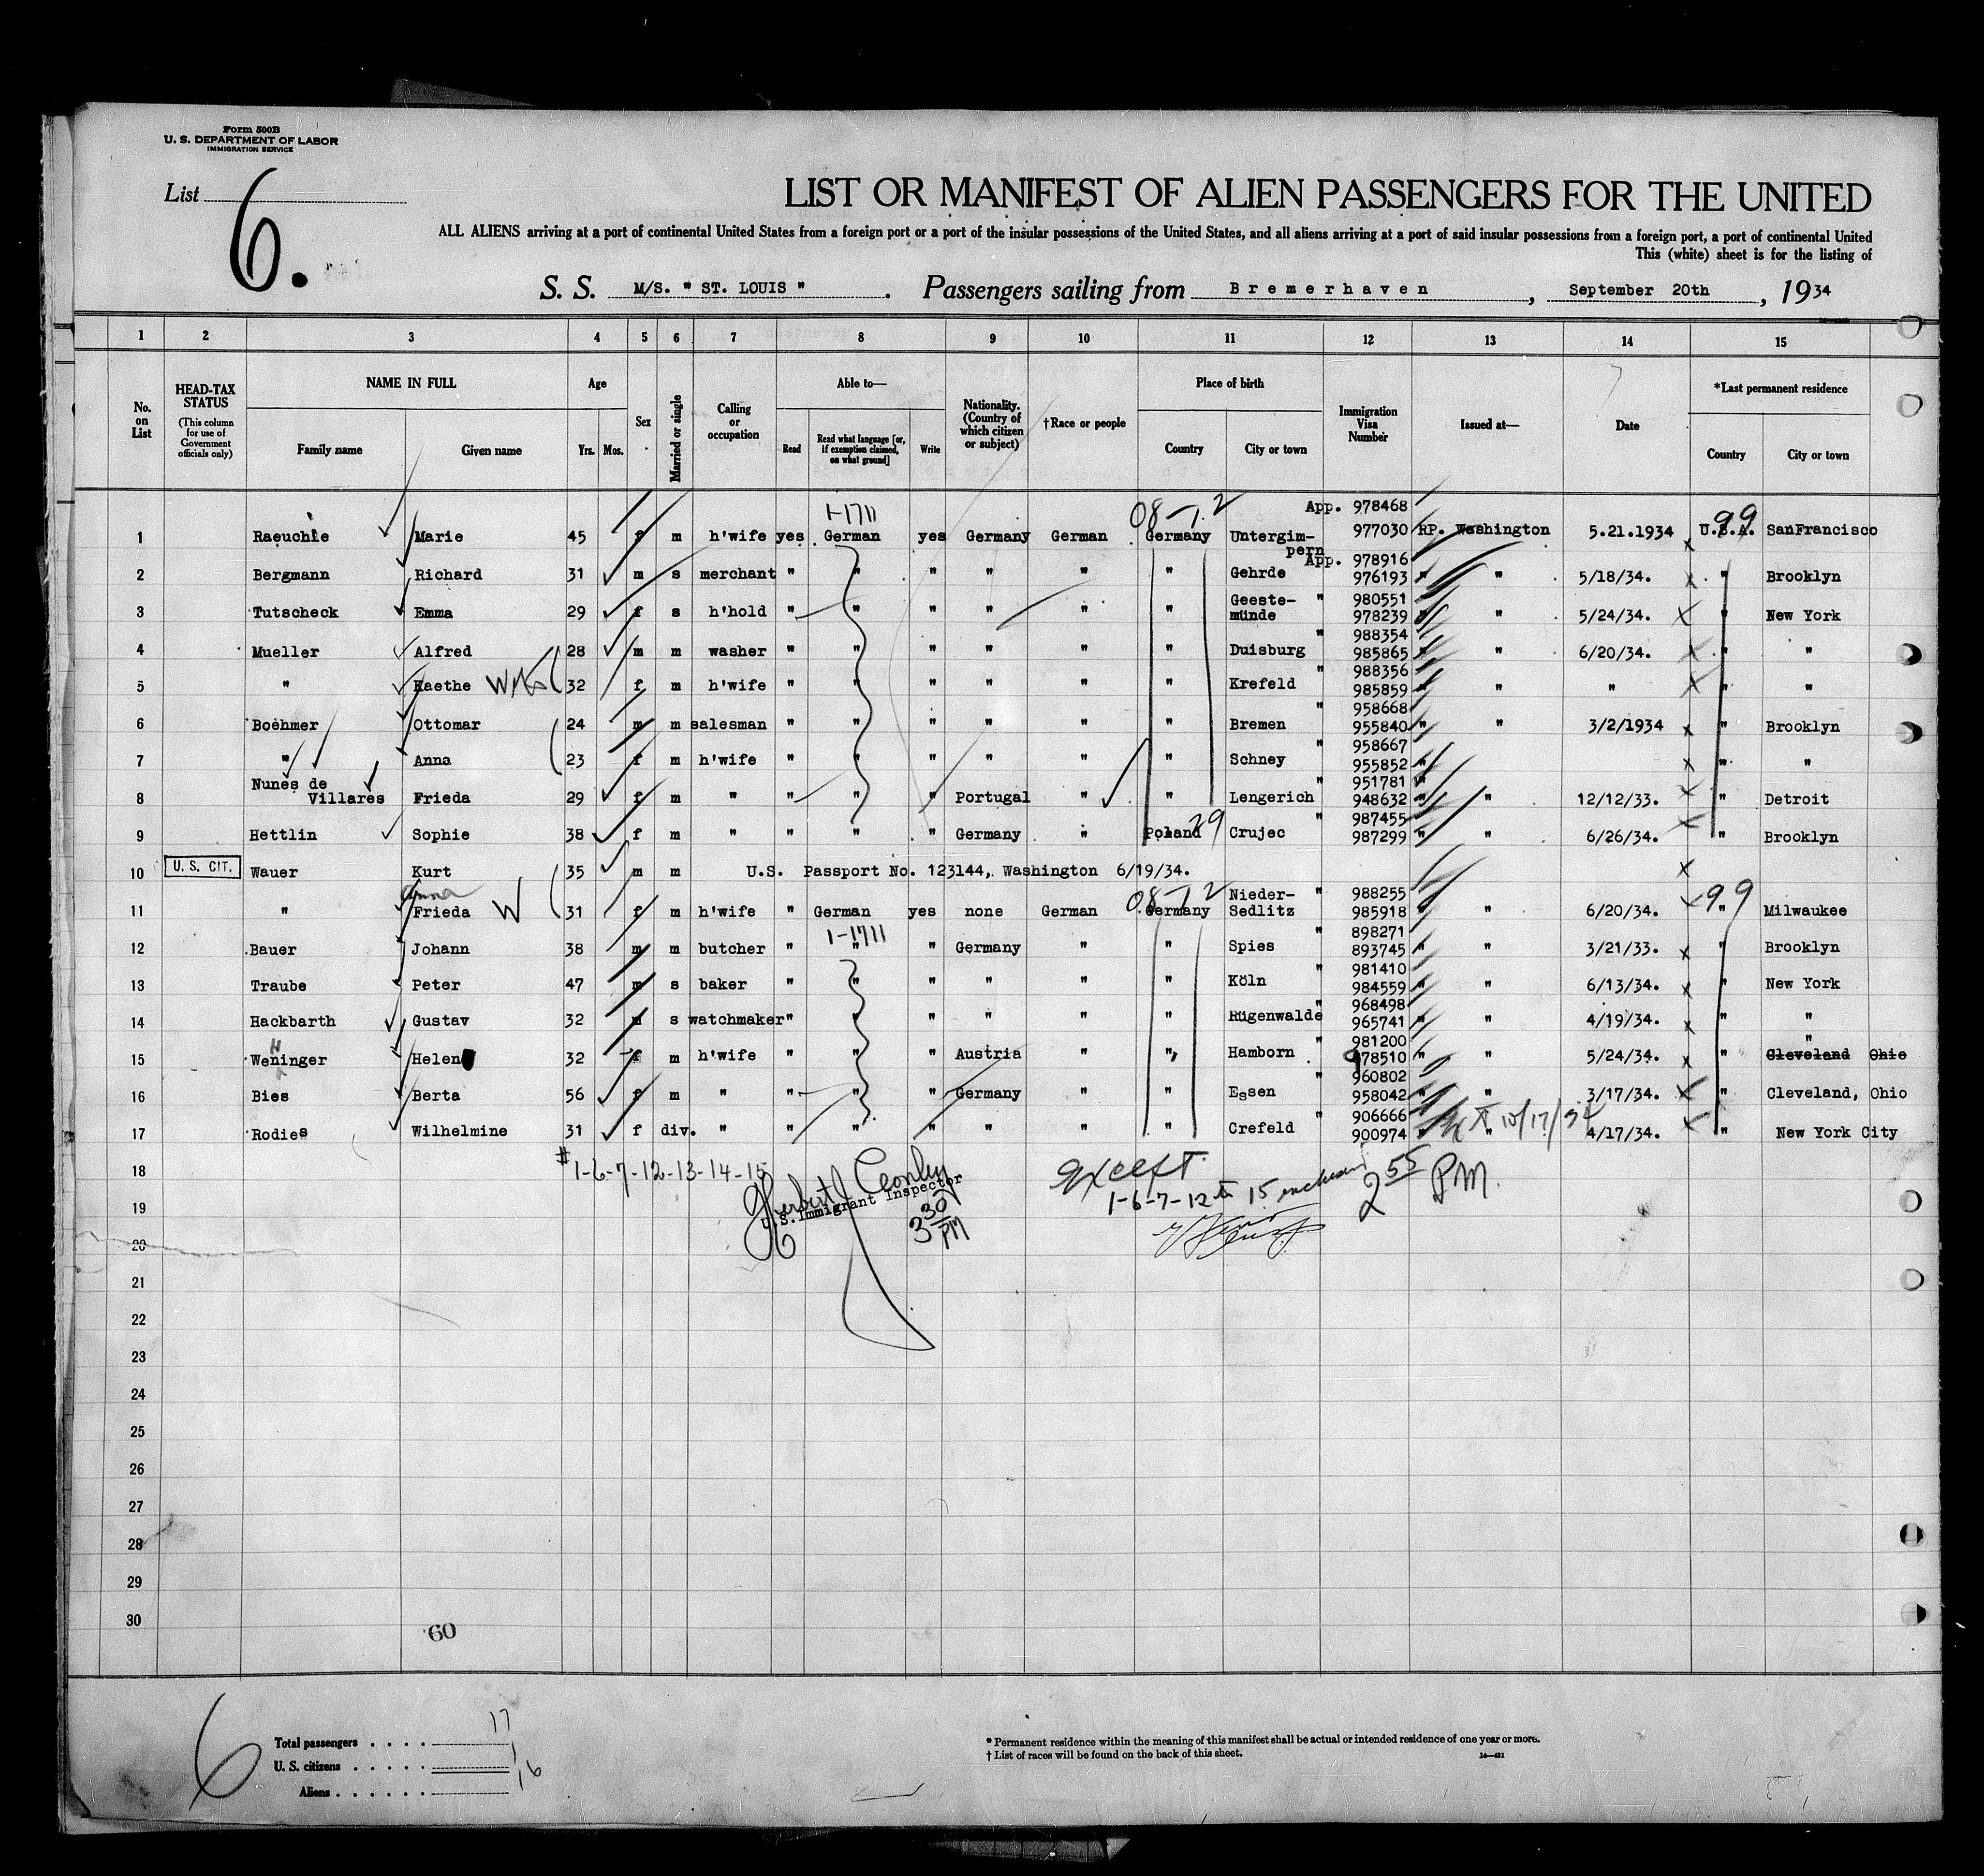 Form 500B
U. S. DEPARTMENT OF LABOR
IMMIGRATION SERVICE
List 6.
LIST OR MANIFEST OF ALIEN PASSENGERS FOR THE UNITED
ALL ALIENS arriving at a port of continental United States from a foreign port or a port of the insular possessions of the United States, and all aliens arriving at a port of said insular possessions from a foreign port, a port of continental United
This (white) sheet is for the listing of
S. S. M/S. " ST. LOUIS " . Passengers sailing from Bremerhaven , September 20th , 1934
1 2 3 4 5 6 7 8 9 10 11 12 13 14 15
No. on List
HEAD-TAX STATUS (This column for use of Government officials only)
NAME IN FULL Family name Given name
Age Yrs. Mos.
Sex
Married or single
Calling or occupation
Able to— Read Read what language [or, if exemption claimed, on what ground] Write
Nationality. (Country of which citizen or subject)
†Race or people
Place of birth Country City or town
Immigration Visa Number
Issued at—
Date
*Last permanent residence Country City or town
1-1711 08-1.2 App. 978468 99
1 Raeuchle Marie 45 f m h'wife yes German yes Germany German Germany Untergimpern 977030 RP. Washington 5.21.1934 U.S.A. SanFrancisco
App. 978916
2 Bergmann Richard 31 m s merchant " " " " " " Gehrde 976193 " " 5/18/34. " Brooklyn
" 980551
3 Tutscheck Emma 29 f s h'hold " " " " " " Geeste-münde 978239 " " 5/24/34. " New York
" 988354
4 Mueller Alfred 28 m m washer " " " " " " Duisburg 985865 " " 6/20/34. " "
" 988356
5 " Kaethe 32 f m h'wife " " " " " " Krefeld 985859 " " " " "
" 958668
6 Boehmer Ottomar 24 m m salesman " " " " " " Bremen 955840 " " 3/2/1934 " Brooklyn
" 958667
7 " Anna 23 f m h'wife " " " " " " Schney 955852 " " "
Nunes de " 951781 "
8 Villares Frieda 29 f m " " " " Portugal " " Lengerich 948632 " " 12/12/33. " Detroit
29 " 987455
9 Hettlin Sophie 38 f m " " " " Germany " Poland Crujec 987299 " " 6/26/34. " Brooklyn
10 U. S. CIT. Wauer Kurt 35 m m U.S. Passport No. 123144, Washington 6/19/34.
Anna 08-1.2 " 988255 99
11 " Frieda W 31 f m h'wife " German yes none German Germany Nieder-Sedlitz 985918 " " 6/20/34. " Milwaukee
1-1711 " 898271
12 Bauer Johann 38 m m butcher " " " Germany " " Spies 893745 " " 3/21/33. " Brooklyn
" 981410
13 Traube Peter 47 m s baker " " " " " " Köln 984559 " " 6/13/34. " New York
" 968498
14 Hackbarth Gustav 32 m s watchmaker " " " " " " Rügenwalde 965741 " " 4/19/34. " "
" 981200 "
15 Weninger Helen 32 f m h'wife " " " Austria " " Hamborn 978510 " " 5/24/34. " Cleveland Ohio
" 960802
16 Bies Berta 56 f m " " " " Germany " " Essen 958042 " " 3/17/34. " Cleveland, Ohio
" 906666 10/17/34
17 Rodies Wilhelmine 31 f div. " " " " " " Crefeld 900974 " " 4/17/34. " New York City
18
# 1-6-7-12-13-14-15
except
1-6-7-12 to 15 inclusive
2 55 PM.
U.S. Immigrant Inspector
19
3 30 PM
20
21
22
23
24
25
26
27
28
29
30
60
6
Total passengers . . . . 17
U. S. citizens . . . . . 1
Aliens . . . . . . 16
* Permanent residence within the meaning of this manifest shall be actual or intended residence of one year or more.
† List of races will be found on the back of this sheet.